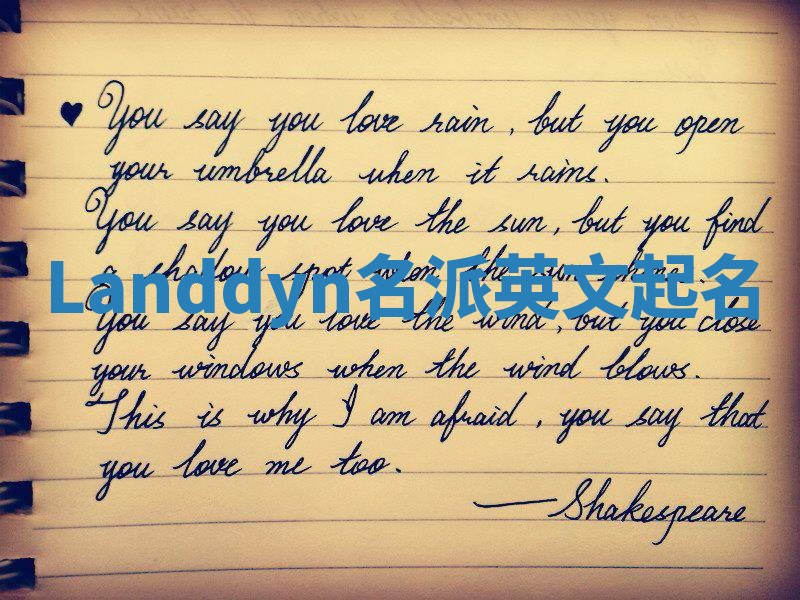 ♥ You say you love rain, but you open
your umbrella when it rains.
You say you love the sun, but you find
a shadow spot when the sun shines.
Landdyn名派英文起名
You say you love the wind, but you close
your windows when the wind blows.
This is why I am afraid, you say that
you love me too.
—Shakespeare